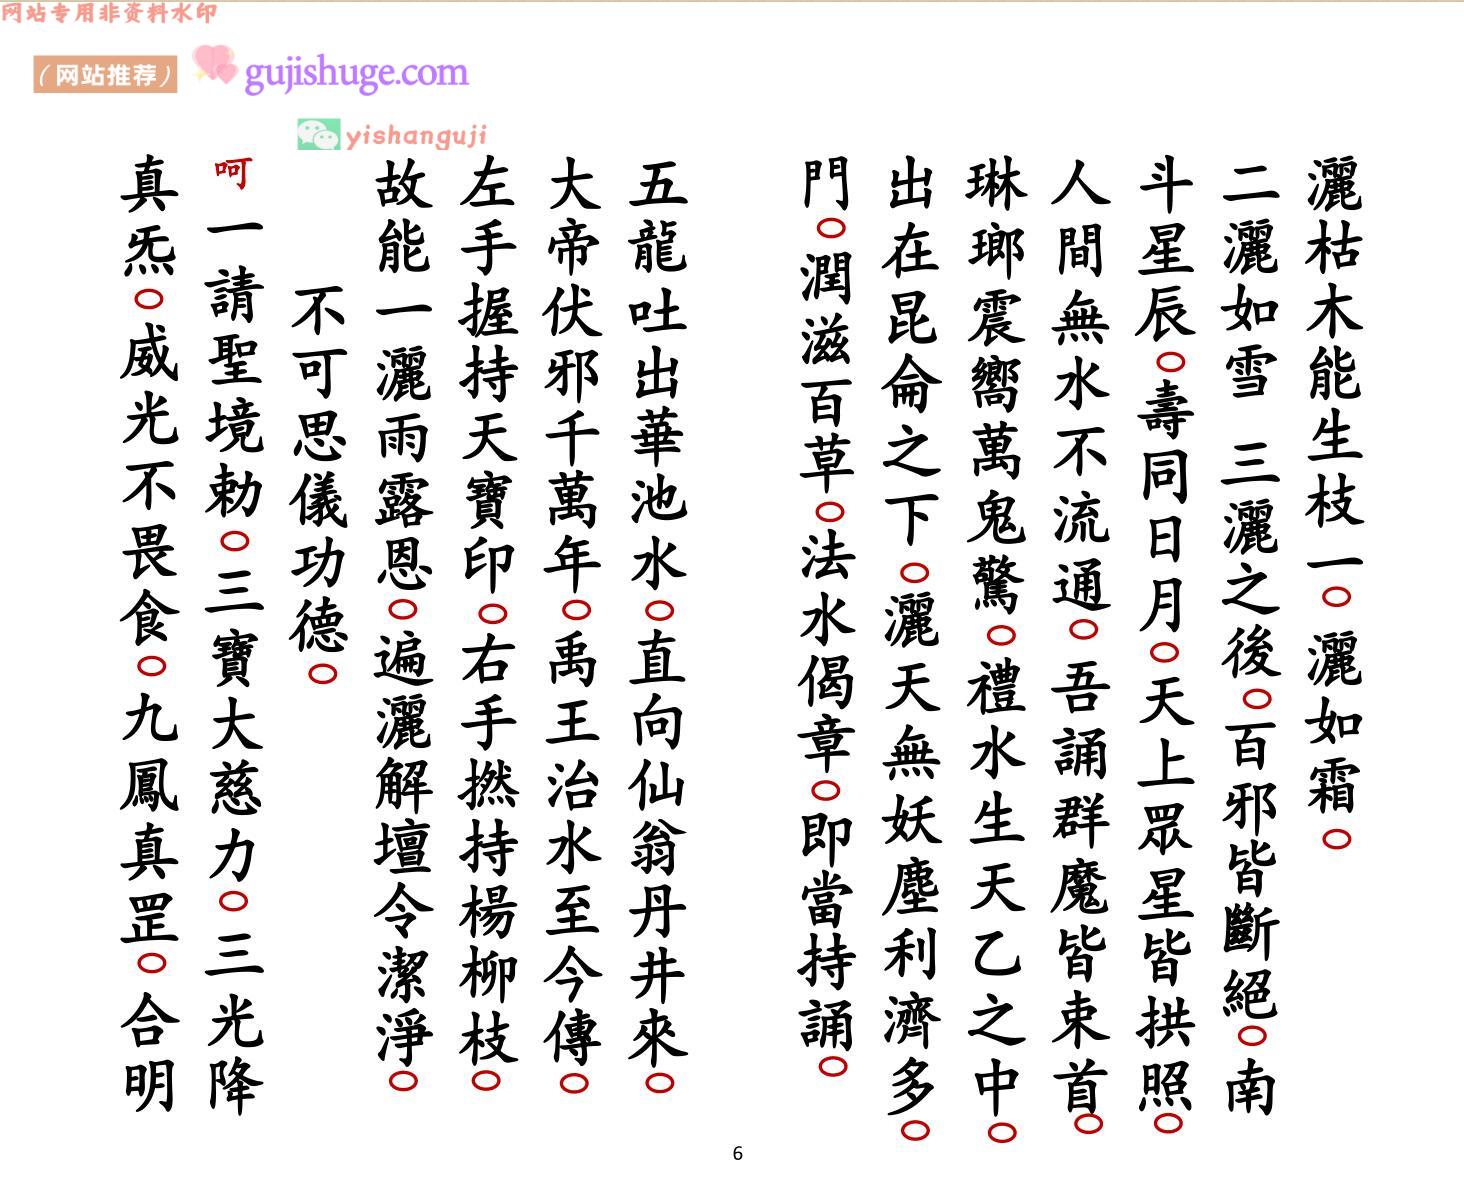 网站专用非资料水印
（网站推荐）
gujishuge.com
yishanguji
灑枯木能生枝一○灑如霜○
二灑如雪 三灑之後○百邪皆斷絕○南
斗星辰○壽同日月○天上眾星皆拱照○
人間無水不流通○吾誦群魔皆束首○
琳瑯震嚮萬鬼驚○禮水生天乙之中○
出在昆侖之下○灑天無妖塵利濟多○
門○潤滋百草○法水偈章○即當持誦○
五龍吐出華池水○直向仙翁丹井來○
大帝伏邪千萬年○禹王治水至今傳○
左手握持天寶印○右手撚持楊柳枝○
故能一灑雨露恩○遍灑解壇令潔淨○
不可思儀功德○
呵一請聖境勅○三寶大慈力○三光降
真炁○威光不畏食○九鳳真罡○合明
6